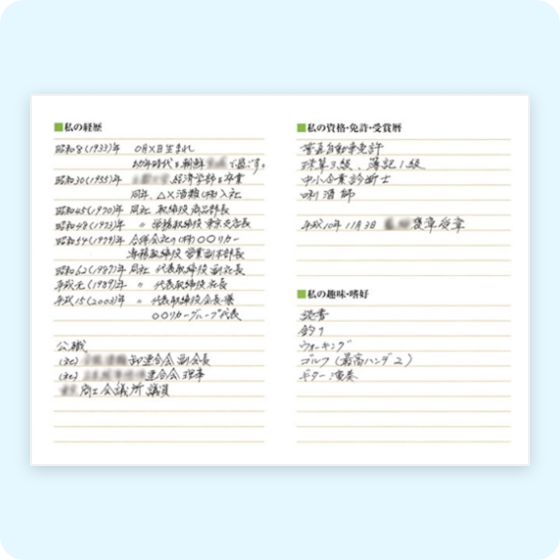 ■私の経歴
昭和8(1933)年 〇月×日生まれ
幼年時代を朝鮮で過ごす。
昭和30(1955)年 経済学部を卒業
同年、△×酒類(株)入社
昭和45(1970)年 同社 取締役商品部長
昭和48(1973)年 〃 常務取締役東京支店長
昭和54(1979)年 合併会社の(株)〇〇リカー
専務取締役営業副本部長
昭和62(1987)年 同社 代表取締役副社長
平成元(1989)年 〃 代表取締役社長
平成15(2003)年 〃 代表取締役会長兼
〇〇リカーグループ代表
公職
(社)連合会副会長
(社)連合会理事
商工会議所議員
■私の資格・免許・受賞暦
普通自動車免許
珠算3級、簿記1級
中小企業診断士
唎酒師
平成10年11月3日 褒章受章
■私の趣味・嗜好
読書
釣り
ウォーキング
ゴルフ(最高ハンデ2)
ギター演奏